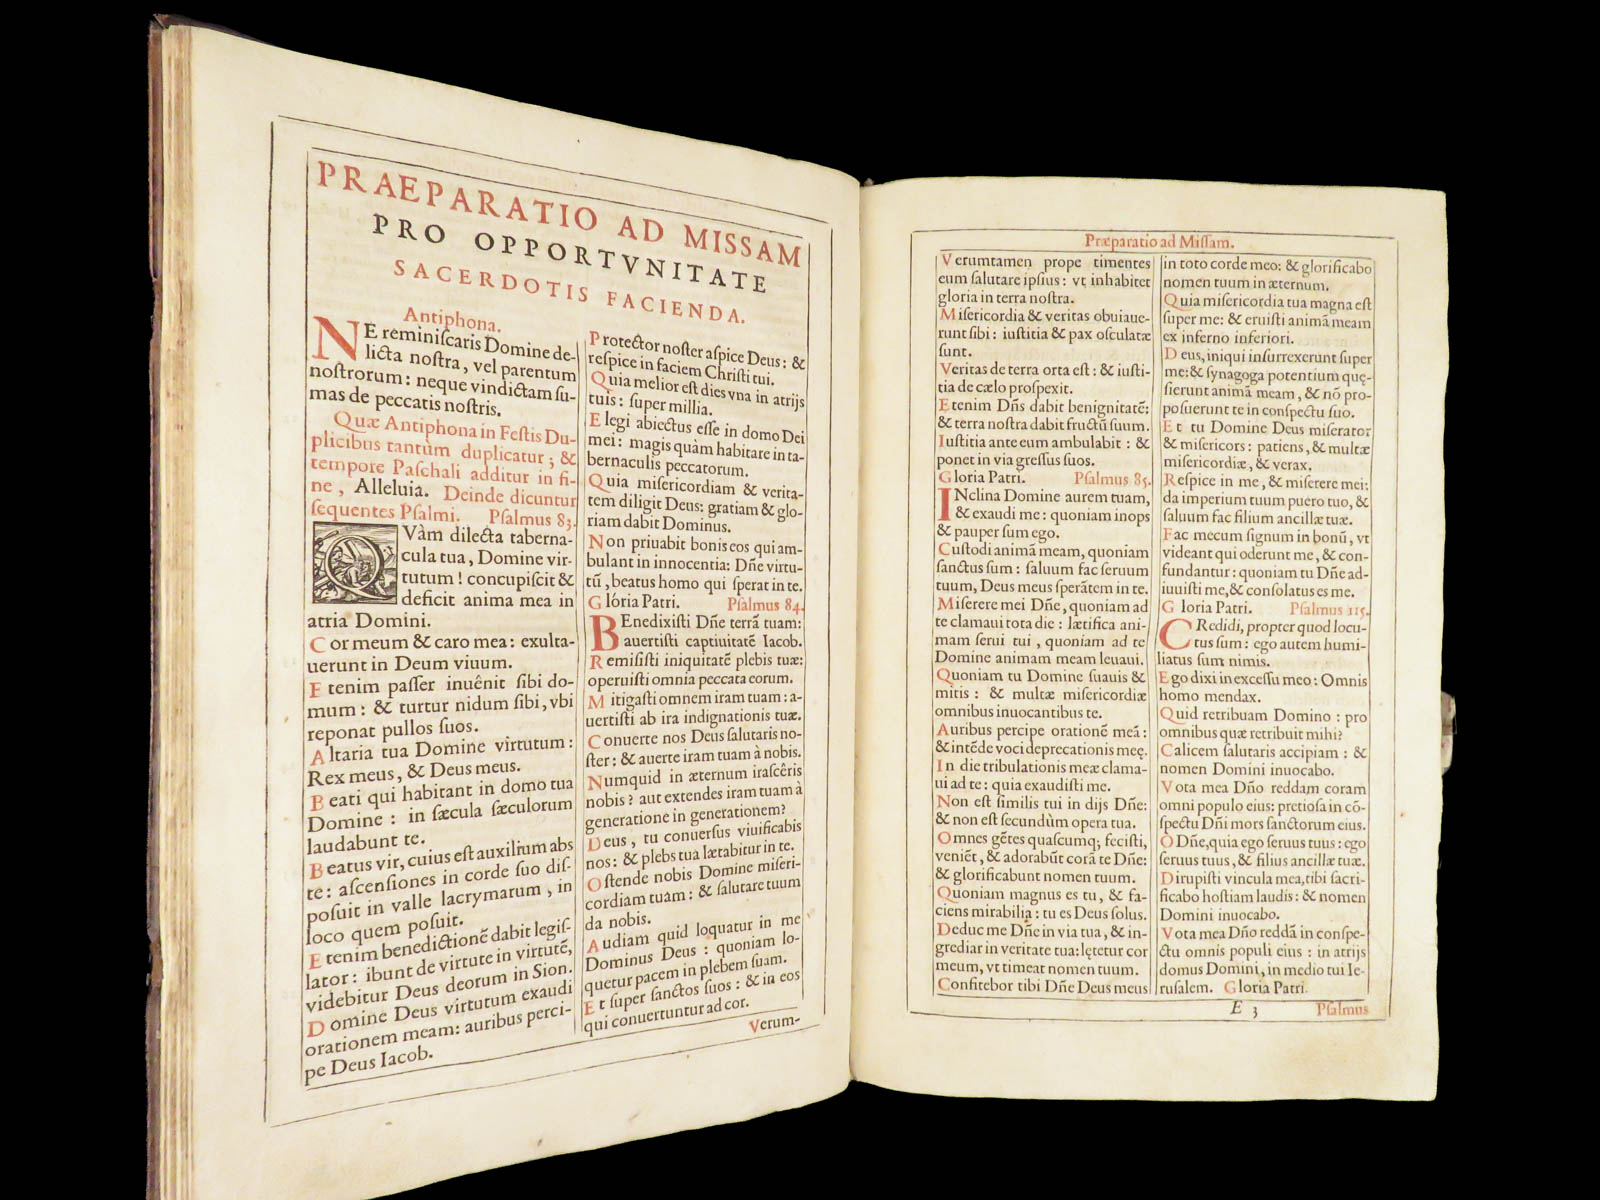 PRAEPARATIO AD MISSAM
PRO OPPORTVNITATE
SACERDOTIS FACIENDA.
Antiphona.
NE reminiſcaris Domine de-
licta noſtra, vel parentum
noſtrorum: neque vindictam ſu-
mas de peccatis noſtris.
Quæ Antiphona in Feſtis Du-
plicibus tantùm duplicatur; &
tempore Paſchali additur in fi-
ne, Alleluia. Deinde dicuntur
ſequentes Pſalmi. Pſalmus 83.
QVàm dilecta taberna-
cula tua, Domine vir-
tutum! concupiſcit &
deficit anima mea in
atria Domini.
Cor meum & caro mea: exulta-
uerunt in Deum viuum.
Etenim paſſer inuênit ſibi do-
mum: & turtur nidum ſibi, vbi
reponat pullos ſuos.
Altaria tua Domine virtutum:
Rex meus, & Deus meus.
Beati qui habitant in domo tua
Domine: in ſæcula ſæculorum
laudabunt te.
Beatus vir, cuius eſt auxilium abs
te: aſcenſiones in corde ſuo diſ-
poſuit in valle lacrymarum, in
loco quem poſuit.
Etenim benedictionē dabit legiſ-
lator: ibunt de virtute in virtutē,
videbitur Deus deorum in Sion.
Domine Deus virtutum exaudi
orationem meam: auribus perci-
pe Deus Iacob.
Protector noſter aſpice Deus: &
reſpice in faciem Chriſti tui.
Quia melior eſt dies vna in atrijs
tuis: ſuper millia.
Elegi abiectus eſſe in domo Dei
mei: magis quàm habitare in ta-
bernaculis peccatorum.
Quia miſericordiam & verita-
tem diligit Deus: gratiam & glo-
riam dabit Dominus.
Non priuabit bonis eos qui am-
bulant in innocentia: Dñe virtu-
tū, beatus homo qui ſperat in te.
Glória Patri. Pſalmus 84.
BEnedixiſti Dñe terrā tuam:
auertiſti captiuitatē Iacob.
Remiſiſti iniquitatē plebis tuæ:
operuiſti omnia peccata eorum.
Mitigaſti omnem iram tuam: a-
uertiſti ab ira indignationis tuæ.
Conuerte nos Deus ſalutaris no-
ſter: & auerte iram tuam à nobis.
Numquid in æternum iraſcêris
nobis? aut extendes iram tuam à
generatione in generationem?
Deus, tu conuerſus viuificabis
nos: & plebs tua lætabitur in te.
Oſtende nobis Domine miſeri-
cordiam tuam: & ſalutare tuum
da nobis.
Audiam quid loquatur in me
Dominus Deus: quoniam lo-
quetur pacem in plebem ſuam.
Et ſuper ſanctos ſuos: & in eos
qui conuertuntur ad cor.
Verum-
Præparatio ad Miſſam.
Verumtamen prope timentes
eum ſalutare ipſius: vt inhabitet
gloria in terra noſtra.
Miſericordia & veritas obuiaue-
runt ſibi: iuſtitia & pax oſculatæ
ſunt.
Veritas de terra orta eſt: & iuſti-
tia de cælo proſpexit.
Etenim Dñs dabit benignitatē:
& terra noſtra dabit fructū ſuum.
Iuſtitia ante eum ambulabit: &
ponet in via greſſus ſuos.
Gloria Patri. Pſalmus 85.
INclina Domine aurem tuam,
& exaudi me: quoniam inops
& pauper ſum ego.
Cuſtodi animā meam, quoniam
ſanctus ſum: ſaluum fac ſeruum
tuum, Deus meus ſperātem in te.
Miſerere mei Dñe, quoniam ad
te clamaui tota die: lætifica ani-
mam ſerui tui, quoniam ad te
Domine animam meam leuaui.
Quoniam tu Domine ſuauis &
mitis: & multæ miſericordiæ
omnibus inuocantibus te.
Auribus percipe orationē meā:
& intēde voci deprecationis meę.
In die tribulationis meæ clama-
ui ad te: quia exaudiſti me.
Non eſt ſimilis tui in dijs Dñe:
& non eſt ſecundùm opera tua.
Omnes gētes quaſcumq; feciſti,
veniēt, & adorabūt corā te Dñe:
& glorificabunt nomen tuum.
Quoniam magnus es tu, & fa-
ciens mirabilia: tu es Deus ſolus.
Deduc me Dñe in via tua, & in-
grediar in veritate tua: lętetur cor
meum, vt timeat nomen tuum.
Confitebor tibi Dñe Deus meus
in toto corde meo: & glorificabo
nomen tuum in æternum.
Quia miſericordia tua magna eſt
ſuper me: & eruiſti animā meam
ex inferno inferiori.
Deus, iniqui inſurrexerunt ſuper
me: & ſynagoga potentium quę-
ſierunt animā meam, & nō pro-
poſuerunt te in conſpectu ſuo.
Et tu Domine Deus miſerator
& miſericors: patiens, & multæ
miſericordiæ, & verax.
Reſpice in me, & miſerere mei:
da imperium tuum puero tuo, &
ſaluum fac filium ancillæ tuæ.
Fac mecum ſignum in bonū, vt
videant qui oderunt me, & con-
fundantur: quoniam tu Dñe ad-
iuuiſti me, & conſolatus es me.
Gloria Patri. Pſalmus 115.
CRedidi, propter quod locu-
tus ſum: ego autem humi-
liatus ſum nimis.
Ego dixi in exceſſu meo: Omnis
homo mendax.
Quid retribuam Domino: pro
omnibus quæ retribuit mihi?
Calicem ſalutaris accipiam: &
nomen Domini inuocabo.
Vota mea Dño reddam coram
omni populo eius: pretioſa in cō-
ſpectu Dñi mors ſanctorum eius.
O Dñe, quia ego ſeruus tuus: ego
ſeruus tuus, & filius ancillæ tuæ.
Dirupiſti vincula mea, tibi ſacri-
ficabo hoſtiam laudis: & nomen
Domini inuocabo.
Vota mea Dño reddā in conſpe-
ctu omnis populi eius: in atrijs
domus Domini, in medio tui Ie-
ruſalem. Gloria Patri.
E 3 Pſalmus